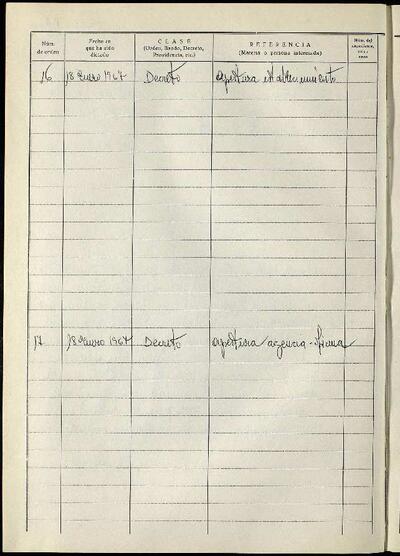 Núm. de orden
Fecha en que ha sido dictado
CLASE
(Orden, Bando, Decreto, Providencia, etc.)
REFERENCIA
(Materia o persona interesada)
Núm. del
16 18 Enero 1967 Decreto apertura establecimiento
17 18 Enero 1967 Decreto apertura agencia